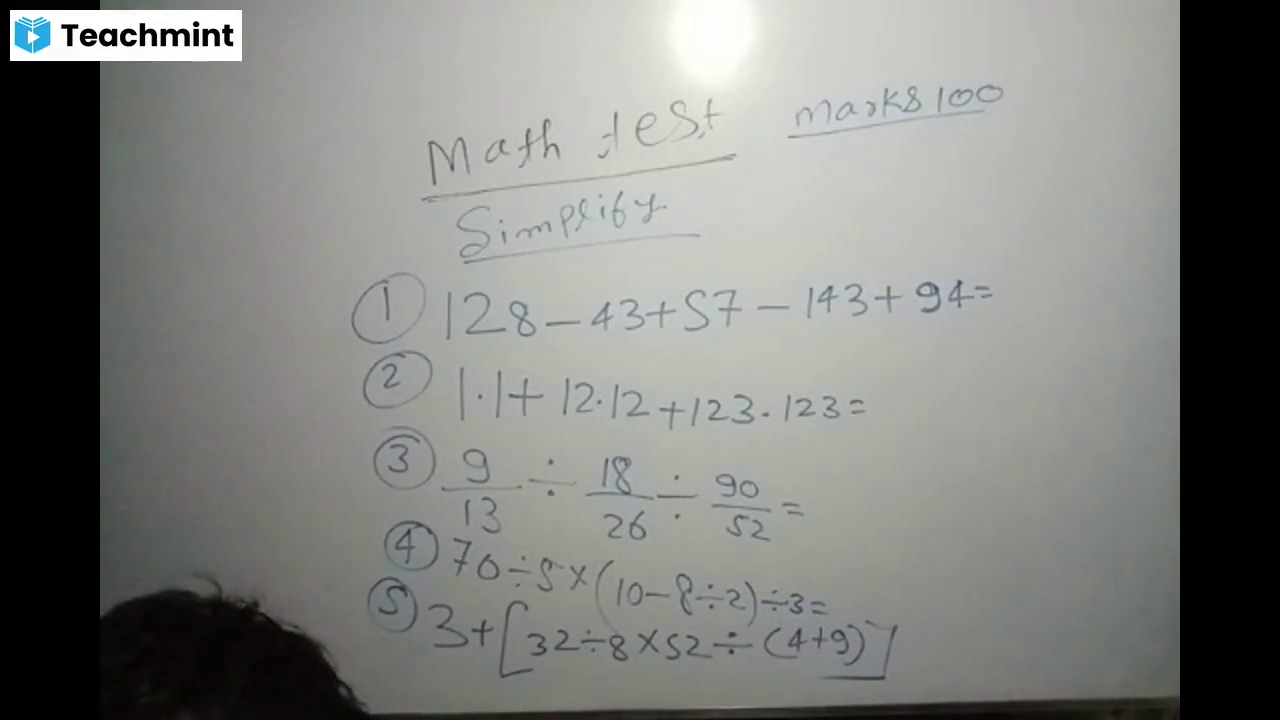 Teachmint
Math test marks 100
Simplify
① 128 - 43 + 57 - 143 + 94 =
② 1.1 + 12.12 + 123.123 =
③ 9/13 ÷ 18/26 ÷ 90/52 =
④ 70 ÷ 5 × (10 - 8 ÷ 2) ÷ 3 =
⑤ 3 + [32 ÷ 8 × 52 ÷ (4 + 9)]